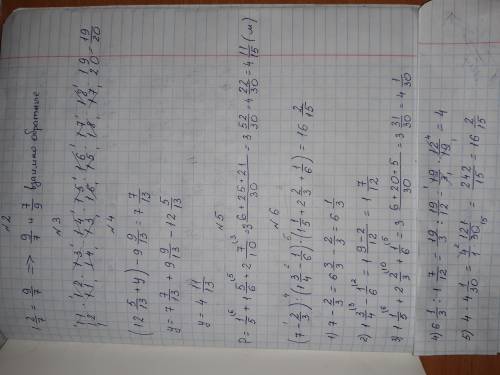 №2
1 2/7 => 9/7 и 7/9 взаимно обратные
№3
= 19/20
№4
(12 5/13 + y) - 9 9/13 = 7 7/13
y = 7 7/13 + 9 9/13 - 12 5/13
y = 4 11/13
№5
P = 1/5 + 1 5/6 + 2 7/10 = 3 (6+25+21)/30 = 3 52/30 = 4 22/30 = 4 11/15 (м)
№6
(7 - 2/3) : (1 3/4 - 1/6) · (1 1/5 + 2 2/3 + 1/6) = 16 2/15
1) 7 - 2/3 = 6 3/3 - 2/3 = 6 1/3
2) 1 3/4 - 1/6 = 1 (9-2)/12 = 1 7/12
3) 1 1/5 + 2 2/3 + 1/6 = 3 (6+20+5)/30 = 3 31/30 = 4 1/30
4) 6 1/3 : 1 7/12 = 19/3 : 19/12 = 19/3 · 12/19 = 4
5) 4 · 4 1/30 = 4/1 · 121/30 = 242/15 = 16 2/15